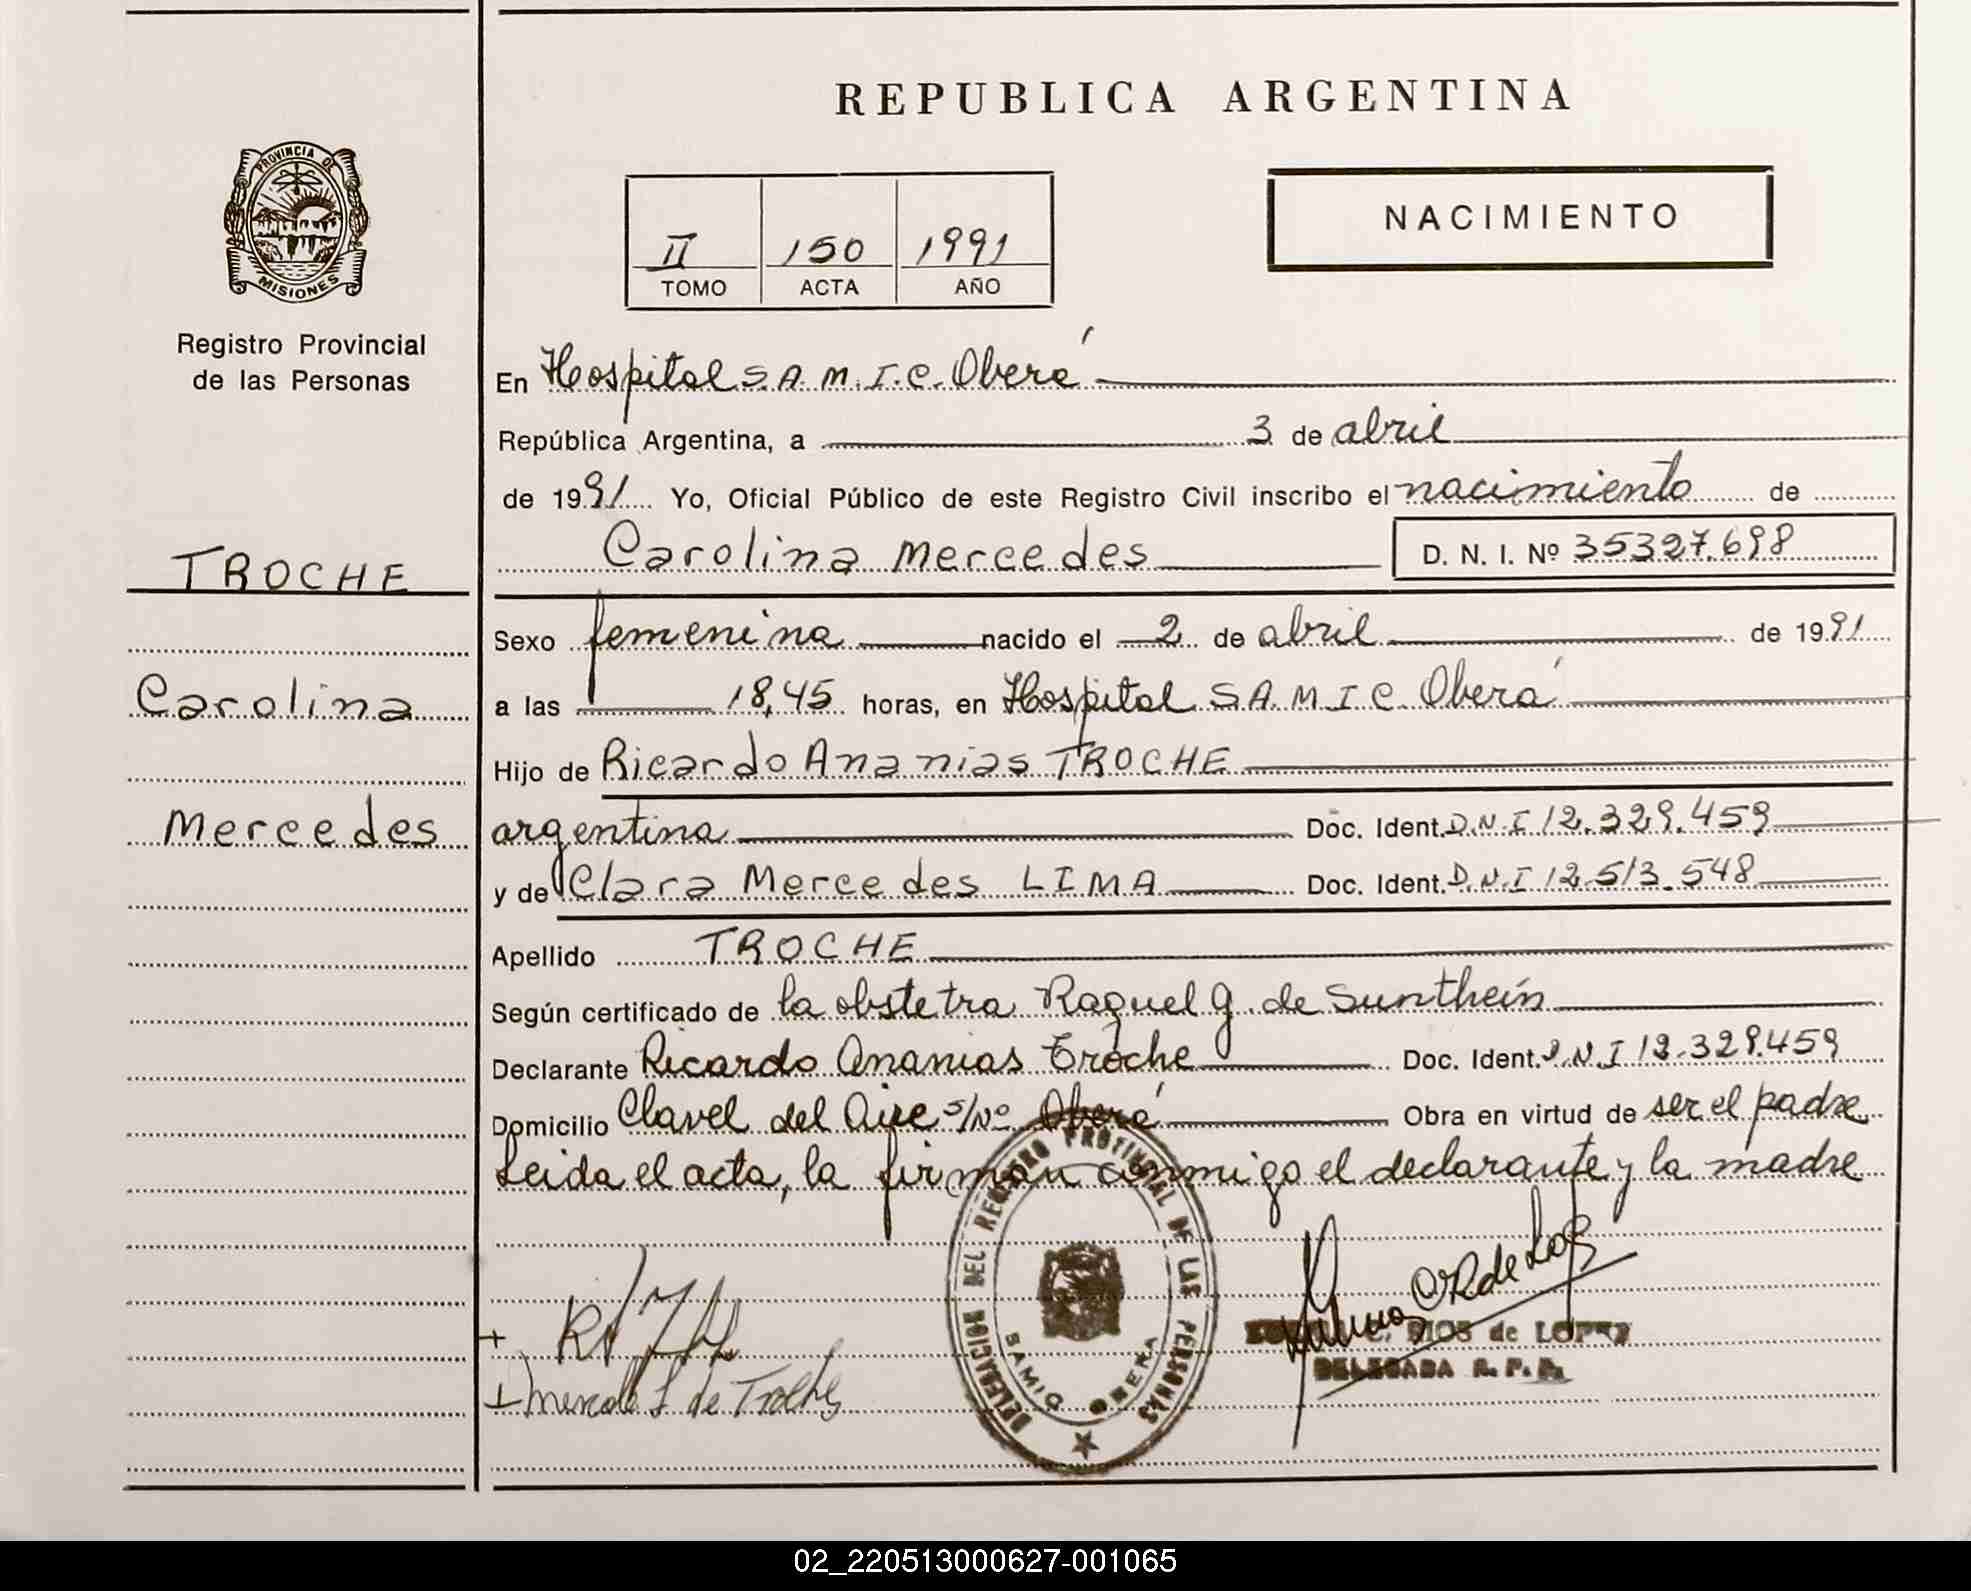 REPUBLICA ARGENTINA
PROVINCIA DE
MISIONES
Registro Provincial
de las Personas
NACIMIENTO
II 150 1991
TOMO ACTA AÑO
En Hospital S.A.M.I.C. Oberá
República Argentina, a 3 de abril
de 1991 Yo, Oficial Público de este Registro Civil inscribo el nacimiento de
Carolina Mercedes D. N. I. Nº 35327.698
TROCHE
Carolina
Mercedes
Sexo femenina nacido el 2 de abril de 1991
a las 18,45 horas, en Hospital S.A.M.I.C. Oberá
Hijo de Ricardo Ananias TROCHE
argentina Doc. Ident. D.N.I 12.329.459
y de Clara Mercedes LIMA Doc. Ident. D.N.I 12.513.548
Apellido TROCHE
Según certificado de la obstetra Raquel G. de Sunthein
Declarante Ricardo Ananias Troche Doc. Ident. D.N.I 12.329.459
Domicilio Clavel del Aire s/Nº Oberá Obra en virtud de ser el padre
Leida el acta, la firman conmigo el declarante y la madre
DELEGACION DEL REGISTRO PROVINCIAL DE LAS PERSONAS
SAMIC OBERA
RIOS de LOPEZ
DELEGADA R. P. P.
de Troche
02_220513000627-001065